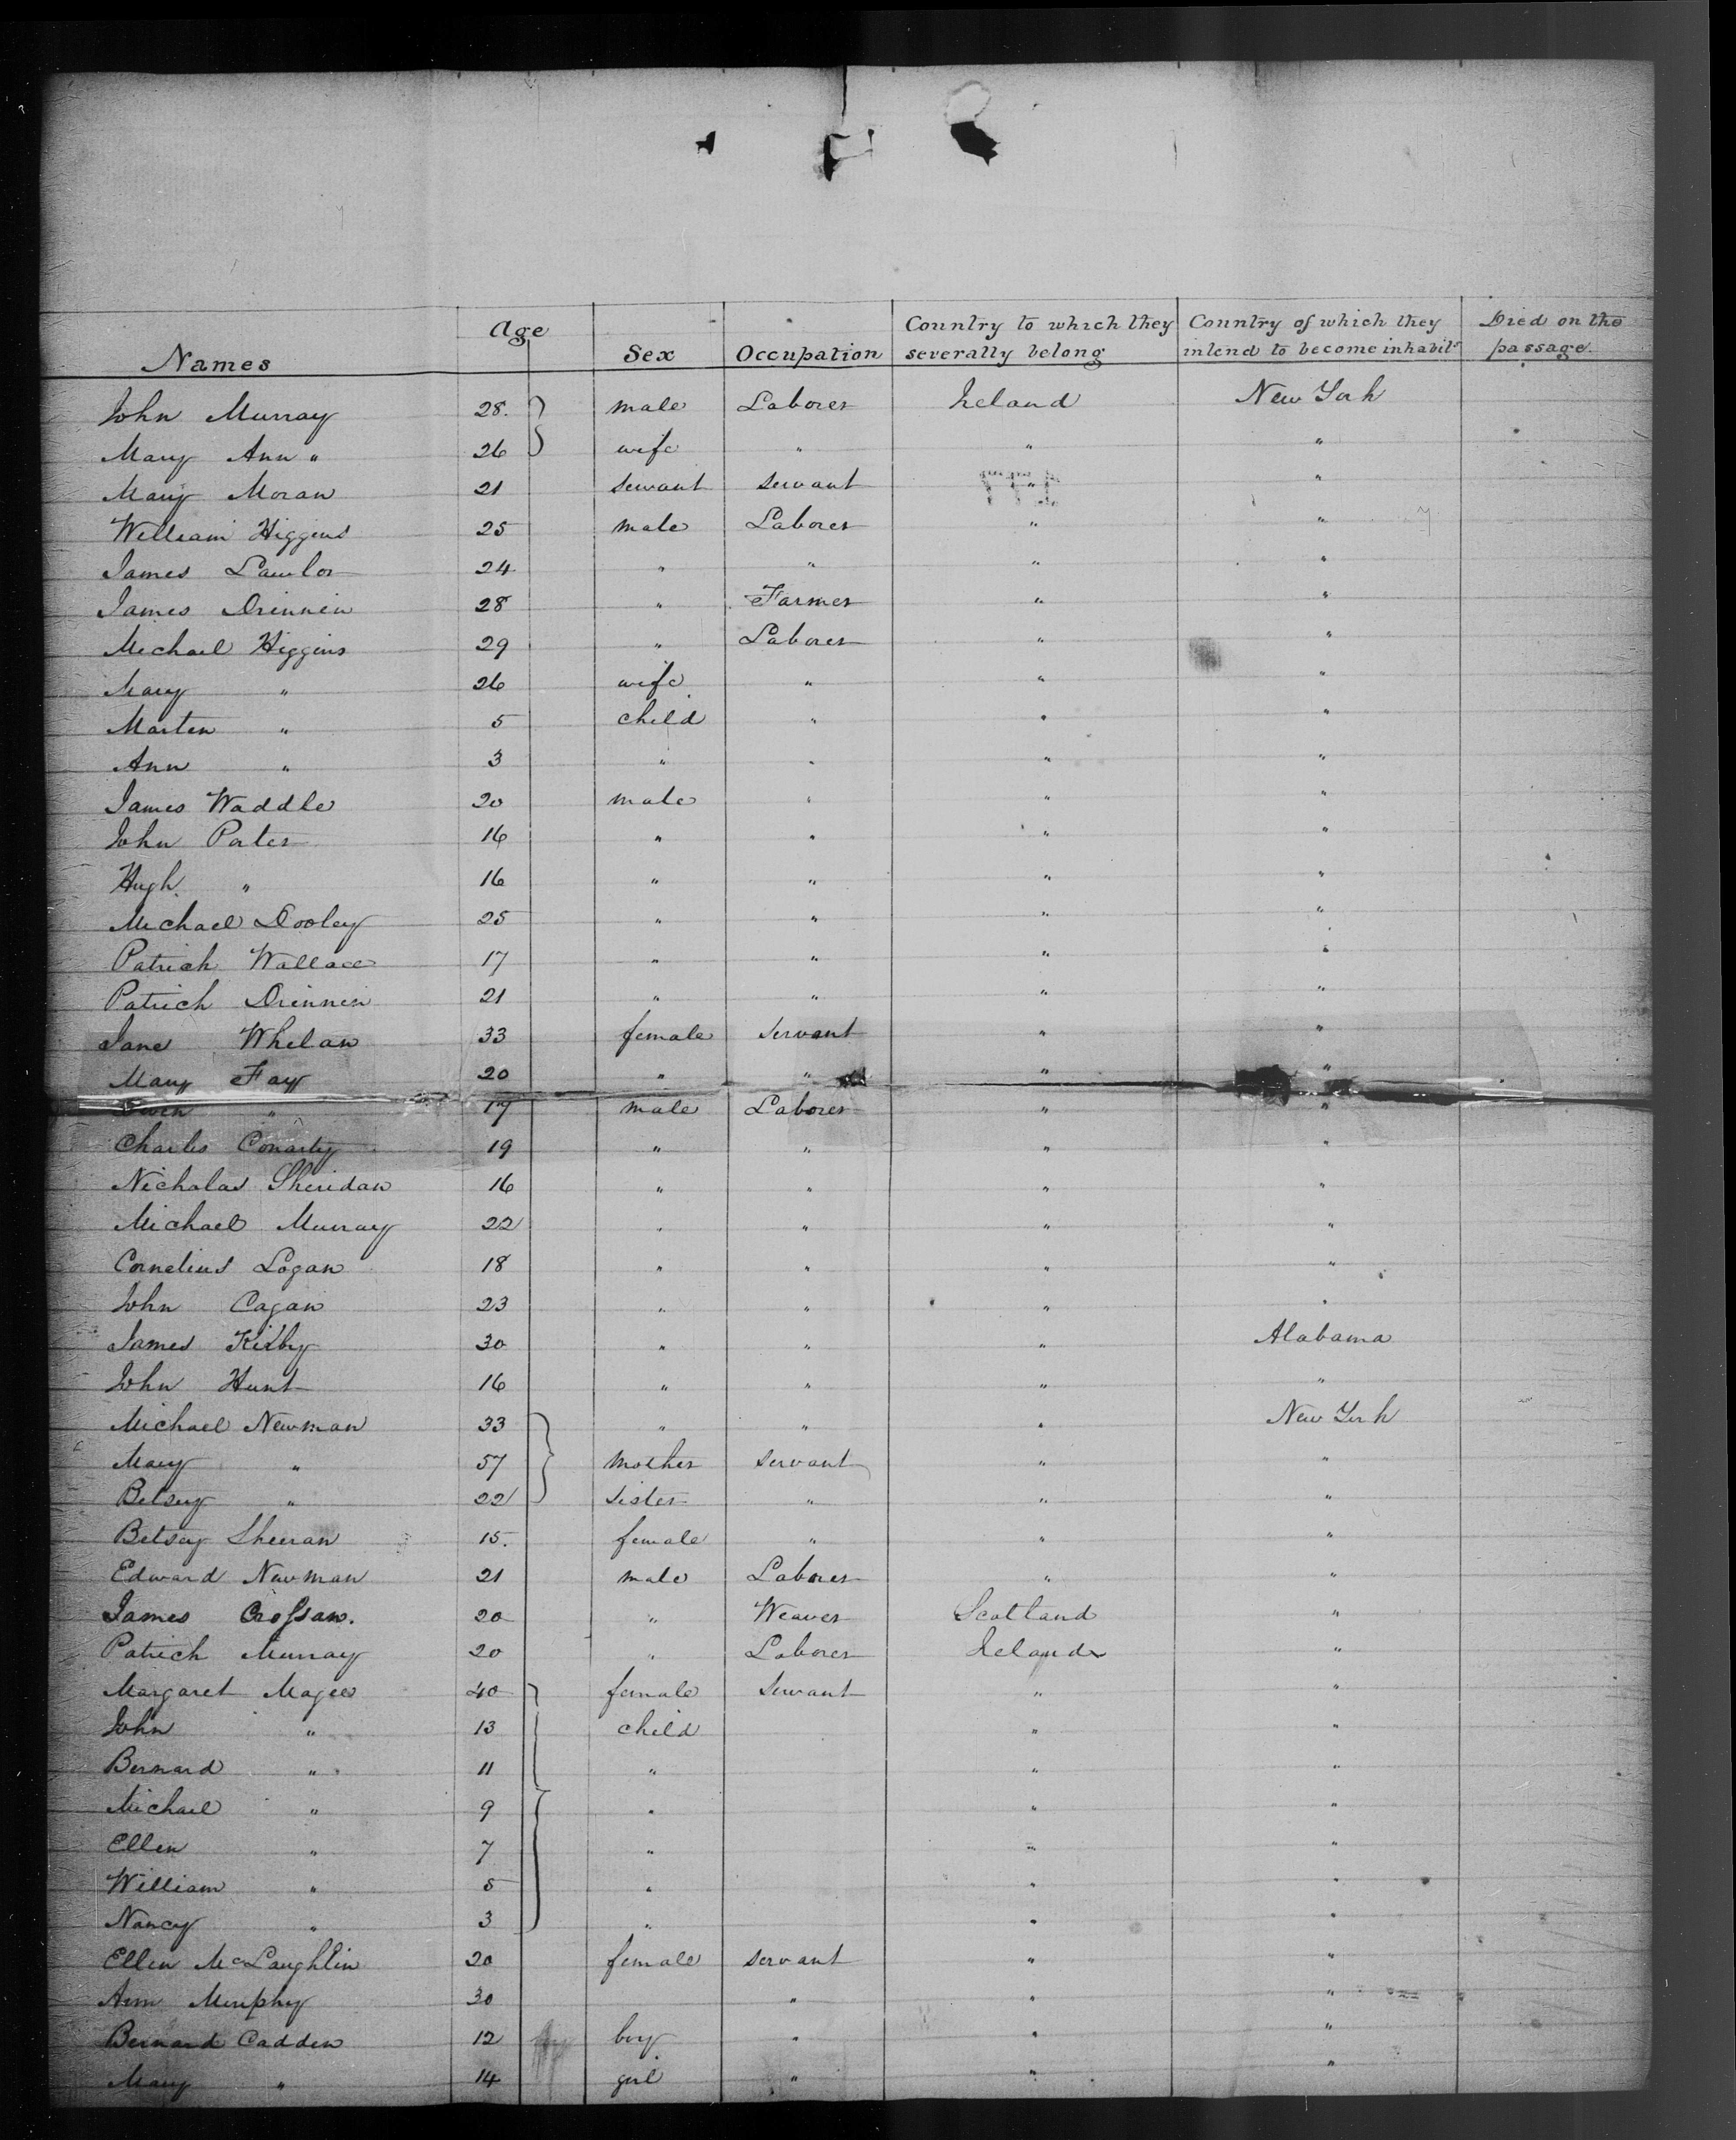 Names Age Sex Occupation Country to which they severally belong Country of which they intend to become inhabits Died on the passage.
John Murray 28. male Laborer Ireland New York
Mary Ann " 26 wife " " "
Mary Moran 21 servant servant " "
William Higgins 25 male Laborer " "
James Lawlor 24 " " " "
James Drinnin 28 " Farmer " "
Michael Higgins 29 " Laborer " "
Mary " 26 wife " " "
Marten " 5 child " " "
Ann " 3 " " " "
James Waddle 20 male " " "
John Porter 16 " " " "
Hugh " 16 " " " "
Michael Dooley 25 " " " "
Patrick Wallace 17 " " " "
Patrick Drinnin 21 " " " "
Jane Whelan 33 female servant " "
Mary Fay 20 " " " "
Owen " 17 male Laborer " "
Charles Conarty 19 " " " "
Nicholas Sheridan 16 " " " "
Michael Murray 22 " " " "
Cornelius Logan 18 " " " "
John Cagan 23 " " " "
James Kirby 30 " " " Alabama
John Hunt 16 " " " "
Michael Newman 33 " " " New York
Mary " 57 mother servant " "
Betsey " 22 sister " " "
Betsey Sheeran 15. female " " "
Edward Newman 21 male Laborer " "
James Crossan. 20 " Weaver Scotland "
Patrick Murray 20 " Laborer Ireland "
Margaret Magee 40 female servant " "
John " 13 child " "
Bernard " 11 " " "
Michael " 9 " " "
Ellen " 7 " " "
William " 5 " " "
Nancy " 3 " " "
Ellen McLaughlin 20 female servant " "
Ann Murphy 30 " " "
Bernard Cadden 12 boy " " "
Mary " 14 girl " " "